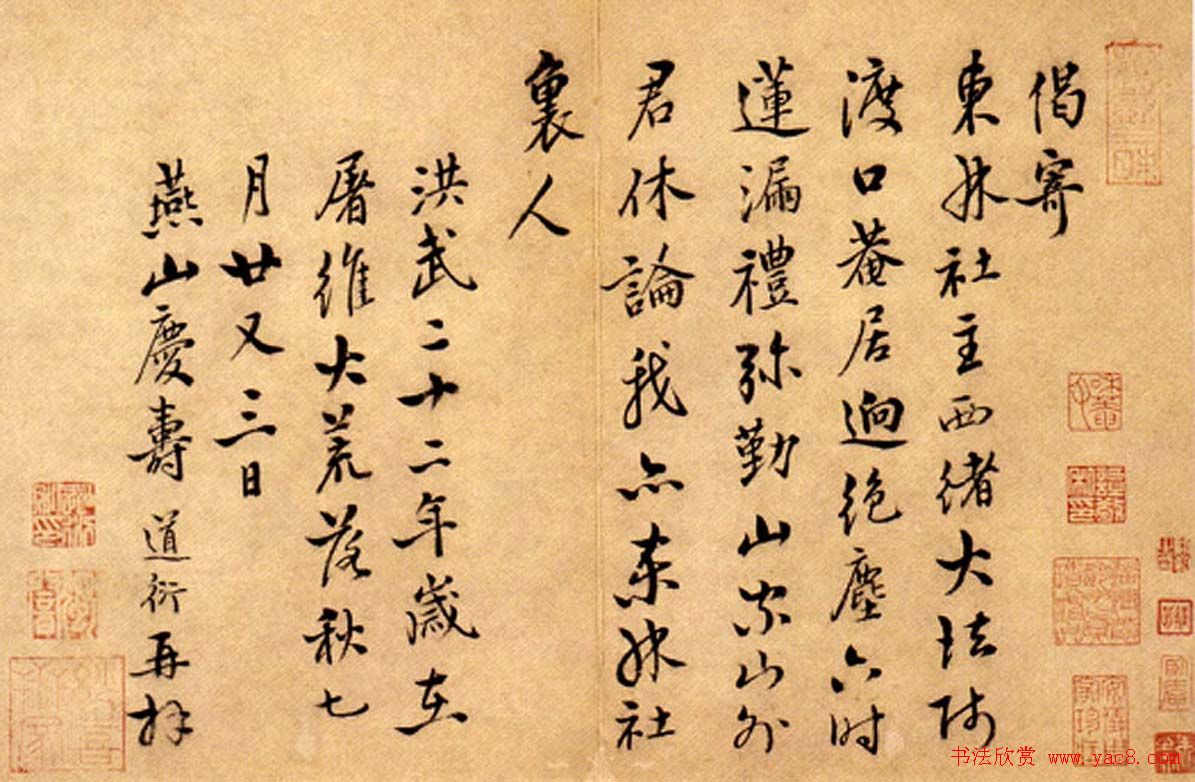 偈寄
東林社主西緒大法师
渡口菴居迥绝塵六时
蓮漏禮弥勤山家山外
君休論我亦東林社
裏人
洪武二十二年歲在
屠維大荒落秋七
月廿又三日
燕山慶壽道衍再拜
书法欣赏 www.yac8.com